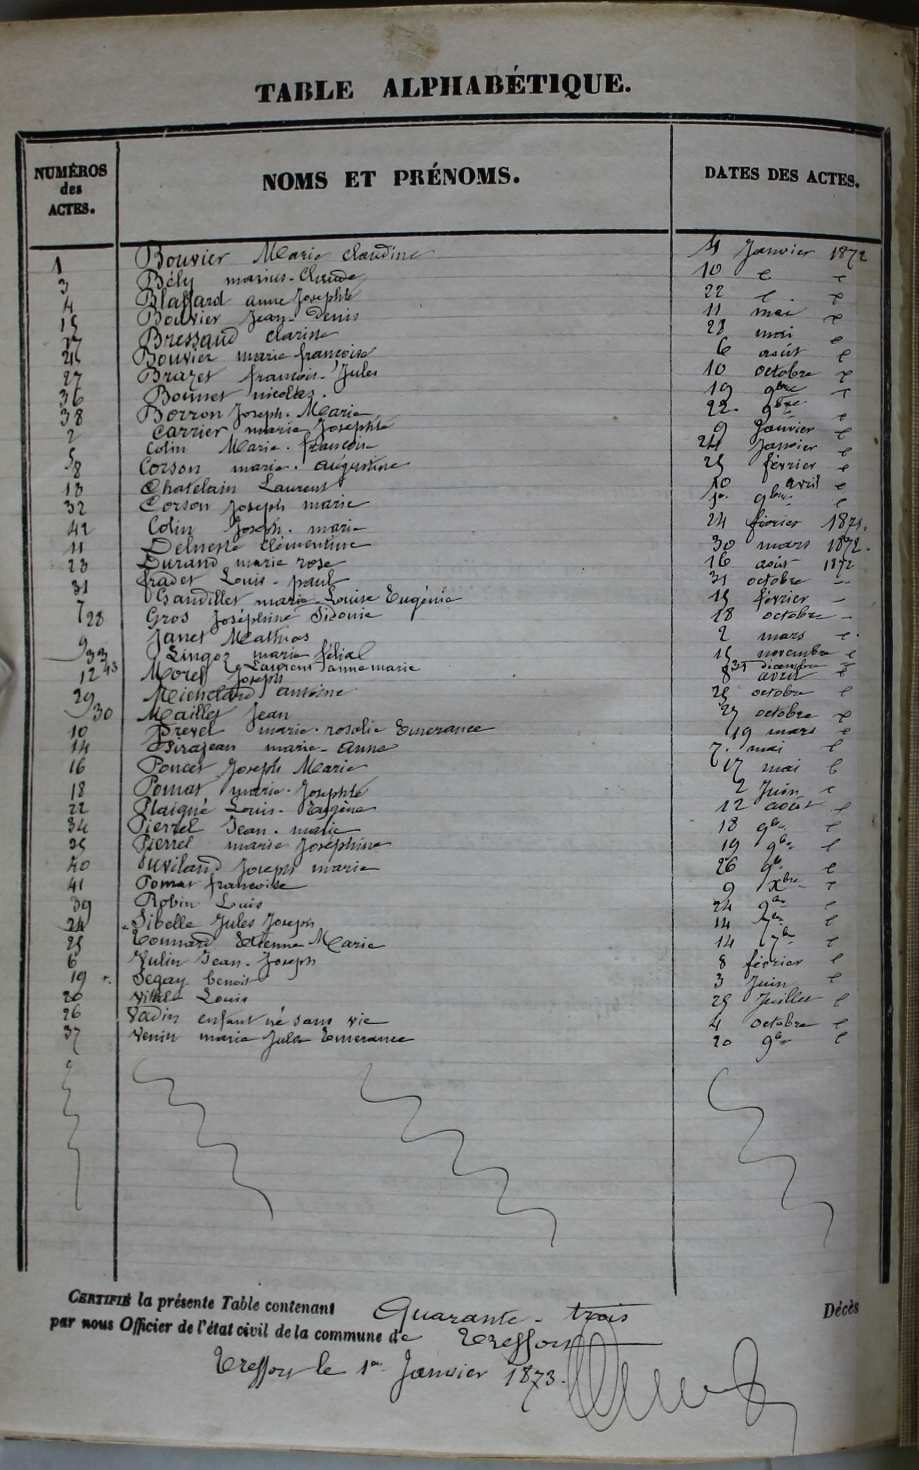 TABLE ALPHABÉTIQUE.
NUMÉROS des ACTES. NOMS ET PRÉNOMS. DATES DES ACTES.
1 Bouvier Marie Claudine 4 Janvier 1872
3 Bély marius-Claude 10 "
4 Blaffard anne Josephte 22 "
15 Bouvier Jean-Denis 11 mai "
17 Bressaud Clarisse 28 mai "
21 Bouvier marie françoise 6 août "
27 Brazet francois-Jules 10 octobre "
36 Bonnet nicolas. 19 9bre "
38 Borron Joseph. Marie 22. 9bre "
2 Carrier marie Josephte 9 Janvier "
5 Colin Marie. françoise 24 Janvier "
8 Corson marie. augustine 25 février "
13 Chatelain Laurent 10 avril "
32 Corson Joseph marie 1er 9bre "
42 Colin Joseph. marie 24 février 1871.
11 Clémentine 30 mars 1872.
23 Durand marie rose 16 août 1872
31 Fradet Louis-paul 31 octobre -
7 Gaudillet marie-Louise Eugénie 15 février -
28 Gros Joséphine Sidonie 18 octobre -
9 Janet Mathias 2 mars "
33 Lingoz marie félial 15 novembre "
43 Laurent anne marie 31 décembre "
12 Morel Joseph 8 avril "
29 Michelard antoine 25 octobre "
30 Maillet Jean 27 octobre "
10 Prevel marie-rosalie Emerance 19 mars "
14 Pirajean marie-anne 7. mai "
16 Poncet Joseph Marie 17 mai "
18 Pomat marie-Josephte 2 Juin "
22 Plaigné Louis-Eugène 12 août "
34 Pierrel Jean-marie 18 9bre "
35 Pierrel marie Joséphine 19 9bre "
40 Puviland Joseph marie 26 9bre "
41 Pomat francoise 9 Xbre "
39 Robin Louis 24 9bre "
24 Sibelle Jules Joseph 14 7bre "
25 Tonnard Etienne Marie 14 7bre "
6 Vulin Jean-Joseph 8 février "
19 Segay benoit 3 Juin "
20 Vitale Louis 25 Juillet "
26 Vadin enfant né sans vie 4 octobre "
37 Venin marie Jules Emerance 20 9bre "
CERTIFIÉ la présente Table contenant Quarante-trois Décès
par nous Officier de l'état civil de la commune de Treffort
Treffort le 1er Janvier 1873.